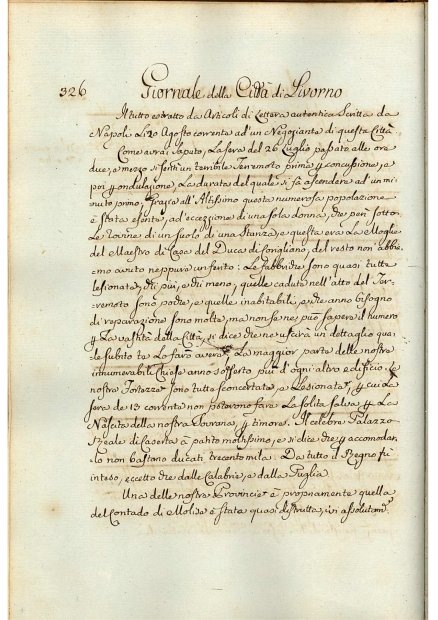 326 Giornale della Città di Livorno
Il tutto estratto da Articoli di Lettera autentica Scritta da
Napoli li 20 Agosto corrente ad'un Negoziante di questa Città.
Come avrai saputo, la sera del 26 Luglio passato alle ore
due, e mezzo si sentì un terribile Terremoto prima p concussione, e
poi p ondulazione. La durata del quale si fà ascendere ad un mi-
nuto primo, grazie all'Altissimo questa numerosa popolazione
è stata esente, ad eccezzione di una sola donna, che perì sotto
le rovine di un suolo di una Stanza, e questa era la Moglie
del Maestro di Casa del Duca di Corigliano, del resto non abbia-
mo avuto neppure un ferito: Le fabbriche sono quasi tutte
lesionate, chi più, e chi meno, quelle cadute nell'atto del Ter-
remoto sono poche, e quelle inabitabili, e che anno bisogno
di reparazione sono molte, ma non se ne può sapere il numero
p la vastità della Città, si dice che ne uscirà un dettaglio qua-
le subito te lo farò avere. La maggior parte delle nostre
innumerabili Chiese anno sofferto più d'ogni altro edificio. Le
nostre Fortezze sono tutte sconcertate, e Lesionate, p cui la
sera de 13 corrente non poterono fare la solita salva p la
Nascita della nostra Sovrana, p timore. Il celebre Palazzo
Reale di Caserta à patito moltissimo, e si dice che p accomodar-
lo non bastano ducati trecento mila. Da tutto il Regno fù
inteso, eccetto che dalle Calabrie, e dalla Puglia.
Una delle nostre Provincie e propriamente quella
del Contado di Molise è stata quasi distrutta, ivi assolutam.